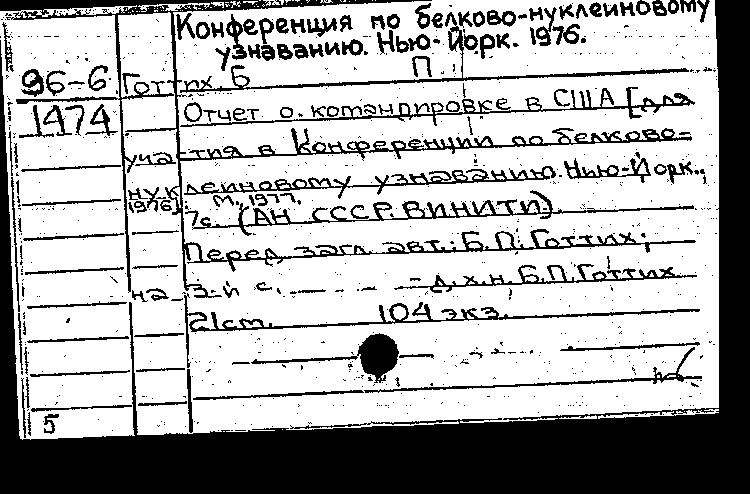 Конференция по белково-нуклеиновому
узнаванию. Нью-Йорк. 1976.
96-6
1474
Готтих. Б П.
Отчет о. командировке в США [для
участия в Конференции по белково-
нуклеиновому узнаванию. Нью-Йорк.,
1976]. М., 1977.
7с. (АН СССР. ВИНИТИ).
Перед загл. авт.: Б. П. Готтих;
на 3-й с. — — — — д. х. н. Б. П. Готтих
21 cm. 104 экз.
5